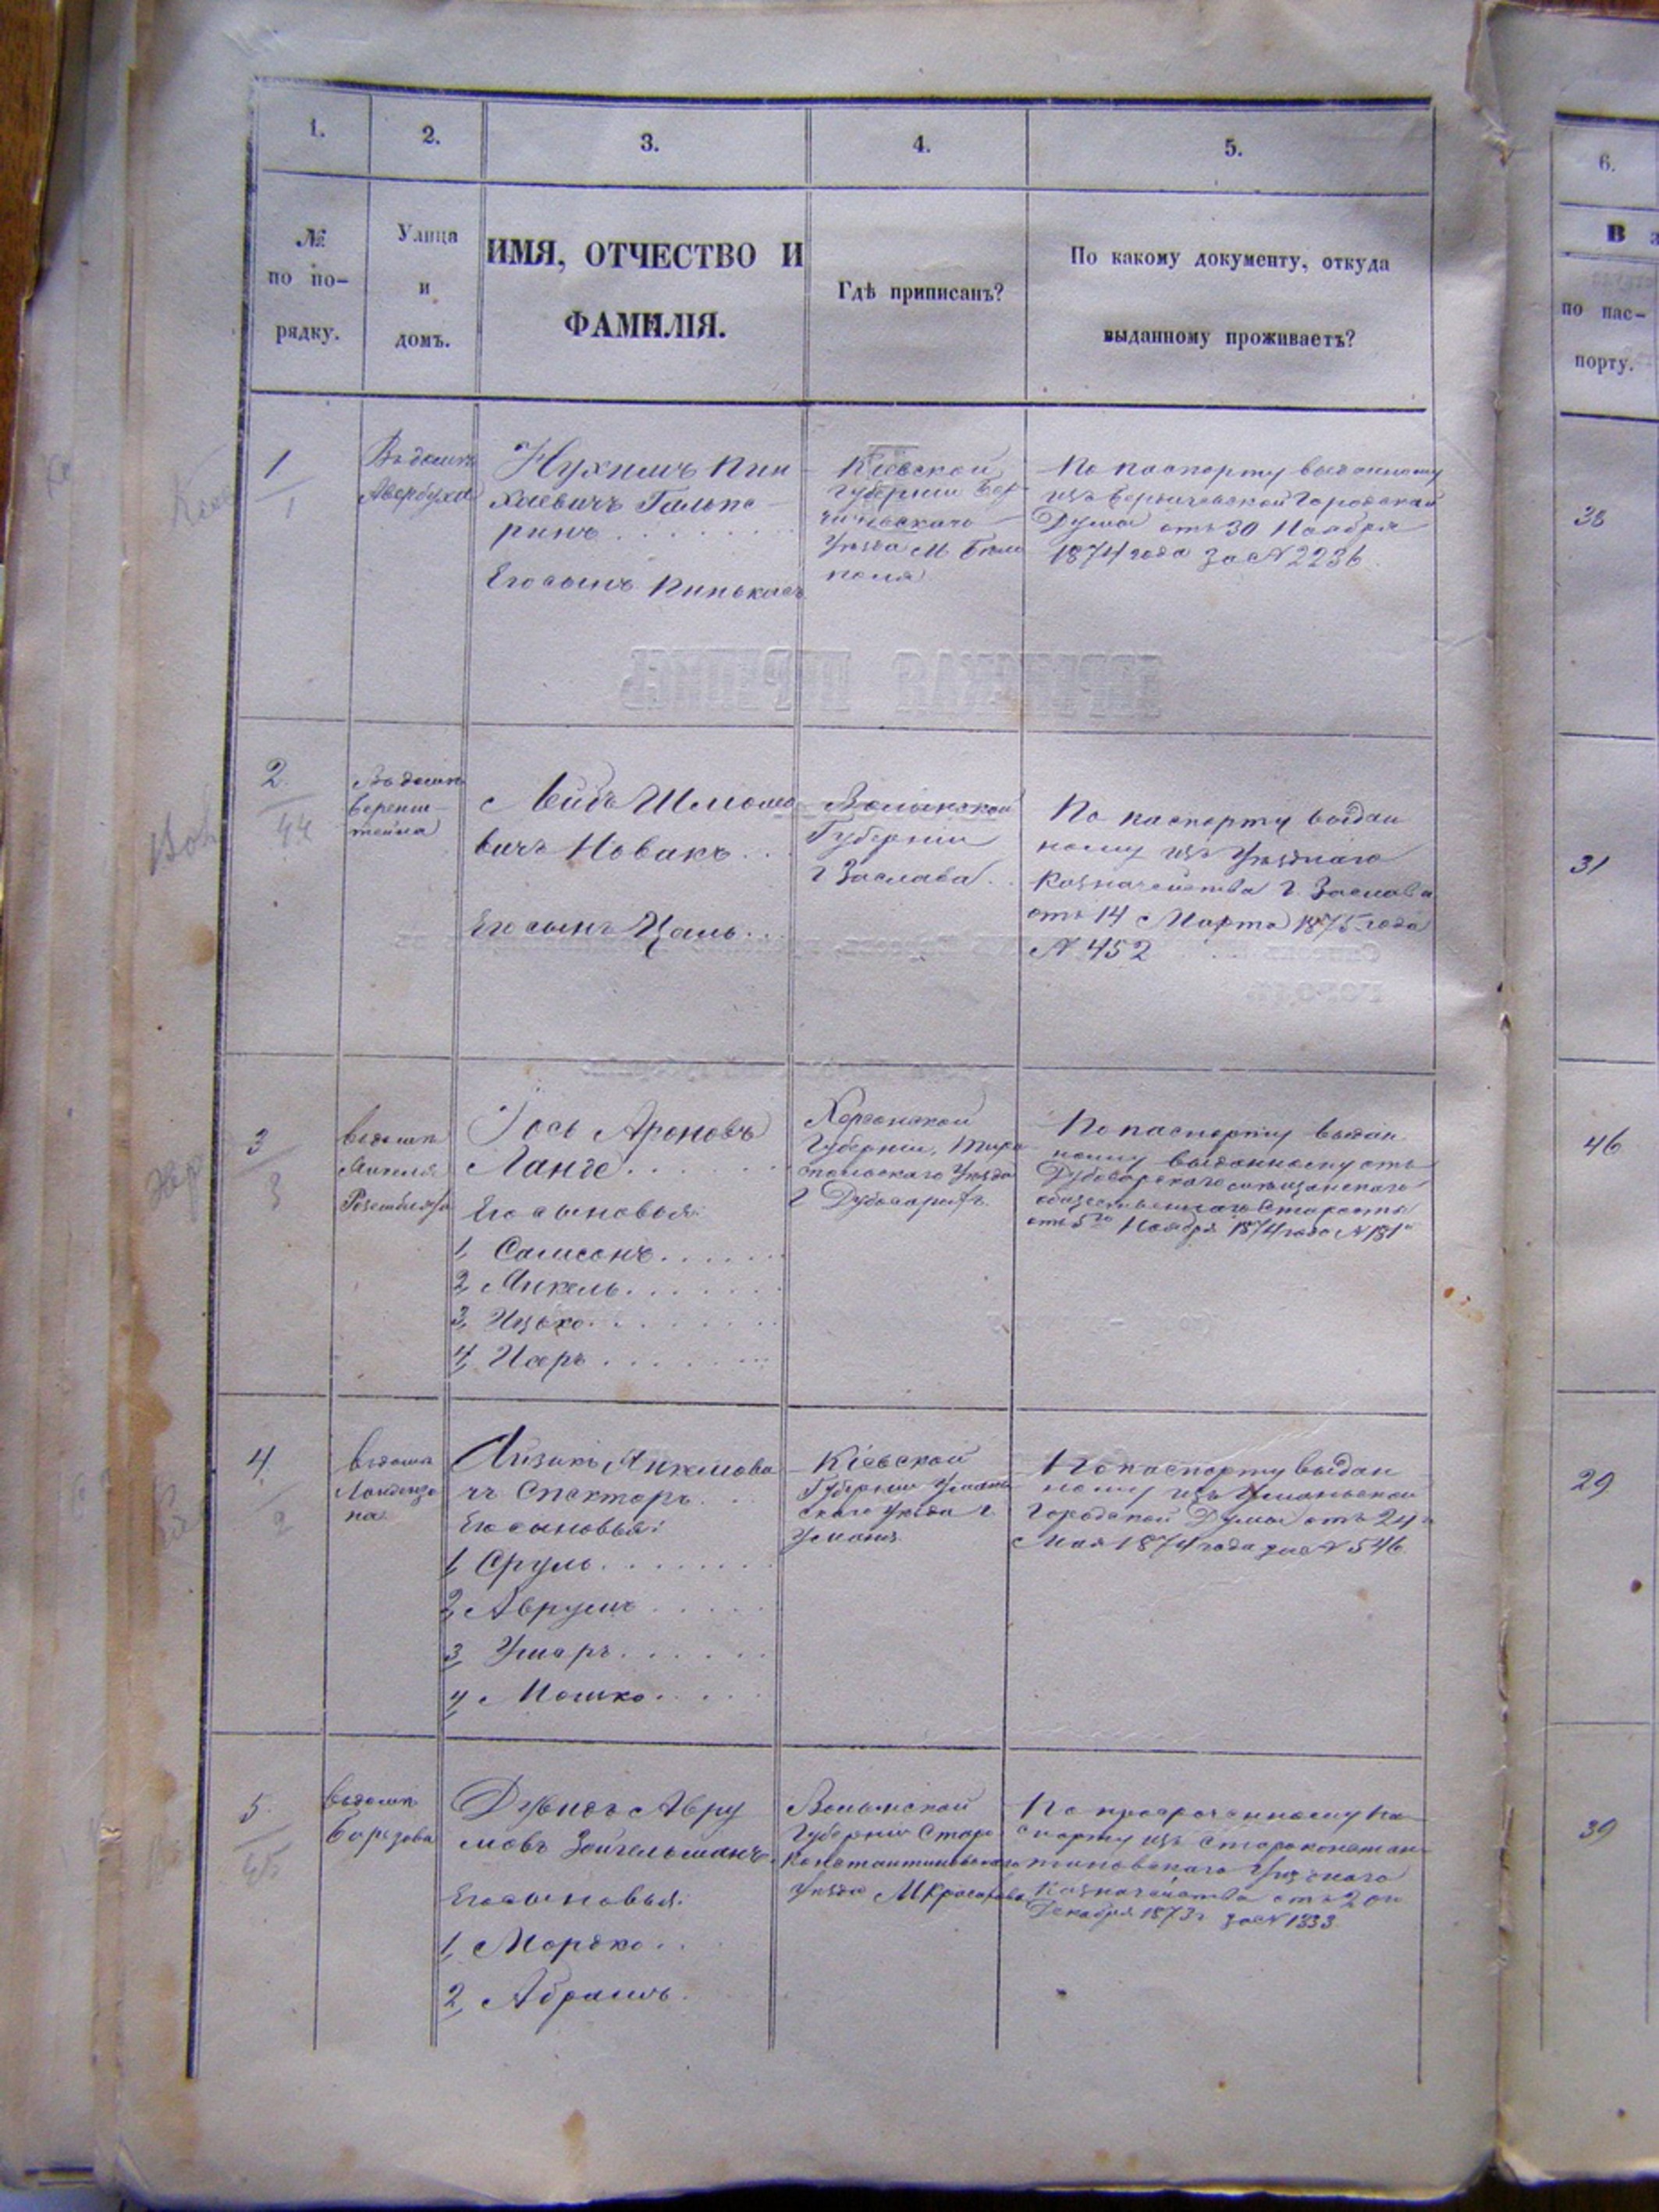 1.
2.
3.
4.
5.
6.
№
по по-
рядку.
Улица
и
домъ.
ИМЯ, ОТЧЕСТВО И
ФАМИЛІЯ.
Гдѣ приписанъ?
По какому документу, откуда
выданному проживаетъ?
В
по пас-
порту.
1
1
Въ домѣ
Авербуха
Нухимъ Пин
хасевичъ Гальпе
ринъ
Его сынъ Пинькасъ
Кіевской
Губерніи Бер
дичевскаго
Уѣзда М. Бѣло
полья
По паспорту выданному
изъ Бердичевской Городской
Думы отъ 30 Ноября
1874 года за № 2236
38
2.
44
Въ домѣ
Беренш
тейна
Лейбъ Шмоло
вичъ Новакъ
Его сынъ Цаль
Волынской
Губерніи
г Заслава
По паспорту выдан
ному изъ Уѣзднаго
Казначейства г. Заслава
отъ 14 Марта 1875 года
№ 452
31
3
3
въ домѣ
Розенблита
Іось Ароновъ
Ланге
Его сыновья:
1, Самсонъ
2, Янкель
3, Ицько
4, Исеръ
Херсонской
Губерніи, Тира
спольскаго Уѣзда
г Дубоссаръ
По паспорту выдан
ному выданному отъ
Дубоссарскаго мѣщанскаго
общественнаго Старосты
отъ 5го Ноября 1874 года № 181
46
4.
2
въ домѣ
Айзикъ Янкелеви
чъ Спекторъ
Его сыновья:
1, Сруль
2, Аврумъ
3, Умаръ
4, Мошко
Кіевской
Губерніи Уман
скаго Уѣзда г.
Умани
По паспорту выдан
ному изъ Уманьской
Городской Думы отъ 24
Мая 1874 года за № 546
29
5.
45
въ домѣ
Борзова
Дувидъ Авру
мовъ Зайгельманъ
Его сыновья:
1, Мордко
2, Абрамъ
Волынской
Губерніи Старо
Константиновскаго
Уѣзда М Красилова
По просроченному па
спорту изъ Староконстан
тиновскаго Уѣзднаго
Казначейства отъ 20
Декабря 1873 г за № 1333
39